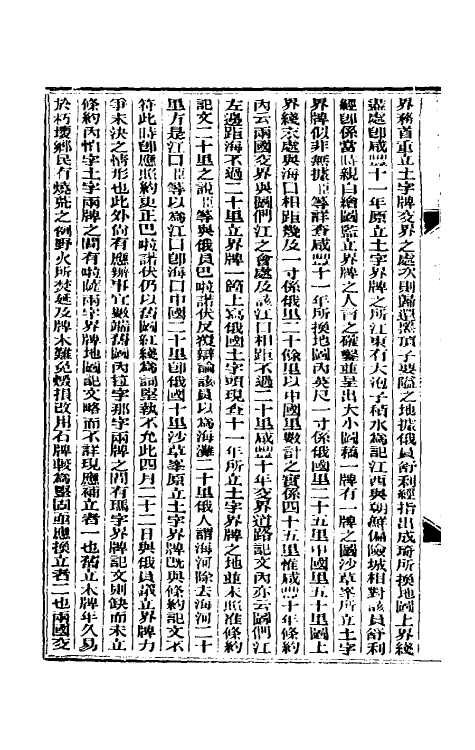 界務首重立土字牌交界之處次則歸還黑頂子要隘之地據俄員舒利經指出成琦所換地圖上界綫
盡處卽咸豐十一年原立土字界牌之所江東有大泡子積水為記江西與朝鮮偏險城相對該員舒利
經卽係當時親自繪圖監立界牌之人言之確鑿並呈出大小圖稿一牌有一牌之圖沙草峯所立土字
界牌似非無據臣等詳查咸豐十一年所換地圖內英尺一寸係俄國里二十五里中國里五十里圖上
界綫末處與海口相距幾及一寸係俄里二十餘里以中國里數計之實係四十五里惟咸豐十年條約
內云兩國交界與圖們江之會處及該江口相距不過二十里咸豐十年交界道路記文內亦云圖們江
左邊距海不過二十里立界牌一箇上寫俄國土字頭現查十一年所立土字界牌之地並未照准條約
記文二十里之說臣等與俄員巴啦諾伏反覆辯論該員以為海灘二十里俄人謂海河除去海河二十
里方是江口臣等以為江口卽海口中國二十里卽俄國十里沙草峯原立土字界牌旣與條約記文不
符此時卽應照約更正巴啦諾伏仍以舊圖紅綫為詞堅執不允此四月二十二日與俄員議立界牌力
爭未決之情形也此外尙有應辦事宜數端舊圖內拉字那字兩牌之間有瑪字界牌記文則缺而未立
條約內怕字土字兩牌之間有啦薩兩字界牌地圖記文略而不詳現應補立者一也舊立木牌年久易
於朽壞鄉民有燒荒之例野火所焚延及牌木難免燬損改用石牌較為堅固並應換立者二也兩國交